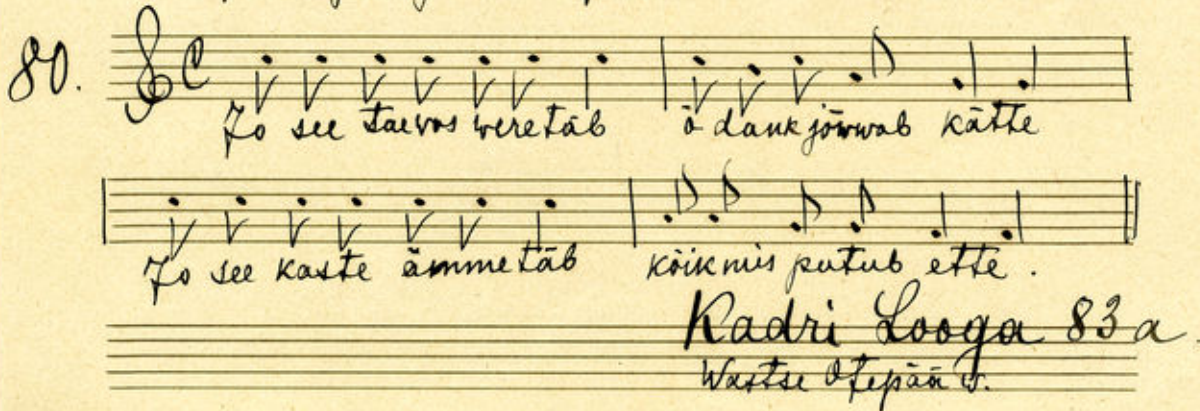 80.
Jo see taevas weretäb ö dank jõwwab kätte
Jo see kaste ämmetäb kõik mis putub ette.
Kadri Looga 83 a.
Wastse Otepää w.